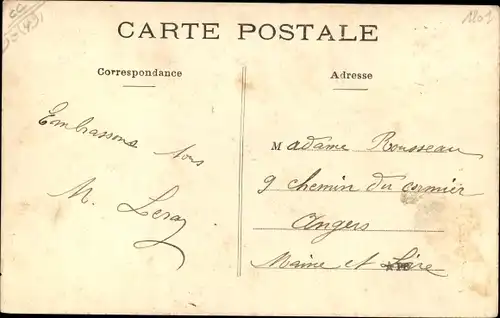 CARTE POSTALE
Correspondance
Embrassons tous
M. Leray
Adresse
Madame Rousseau
9 chemin du cormier
Angers
Maine et Loire
1201